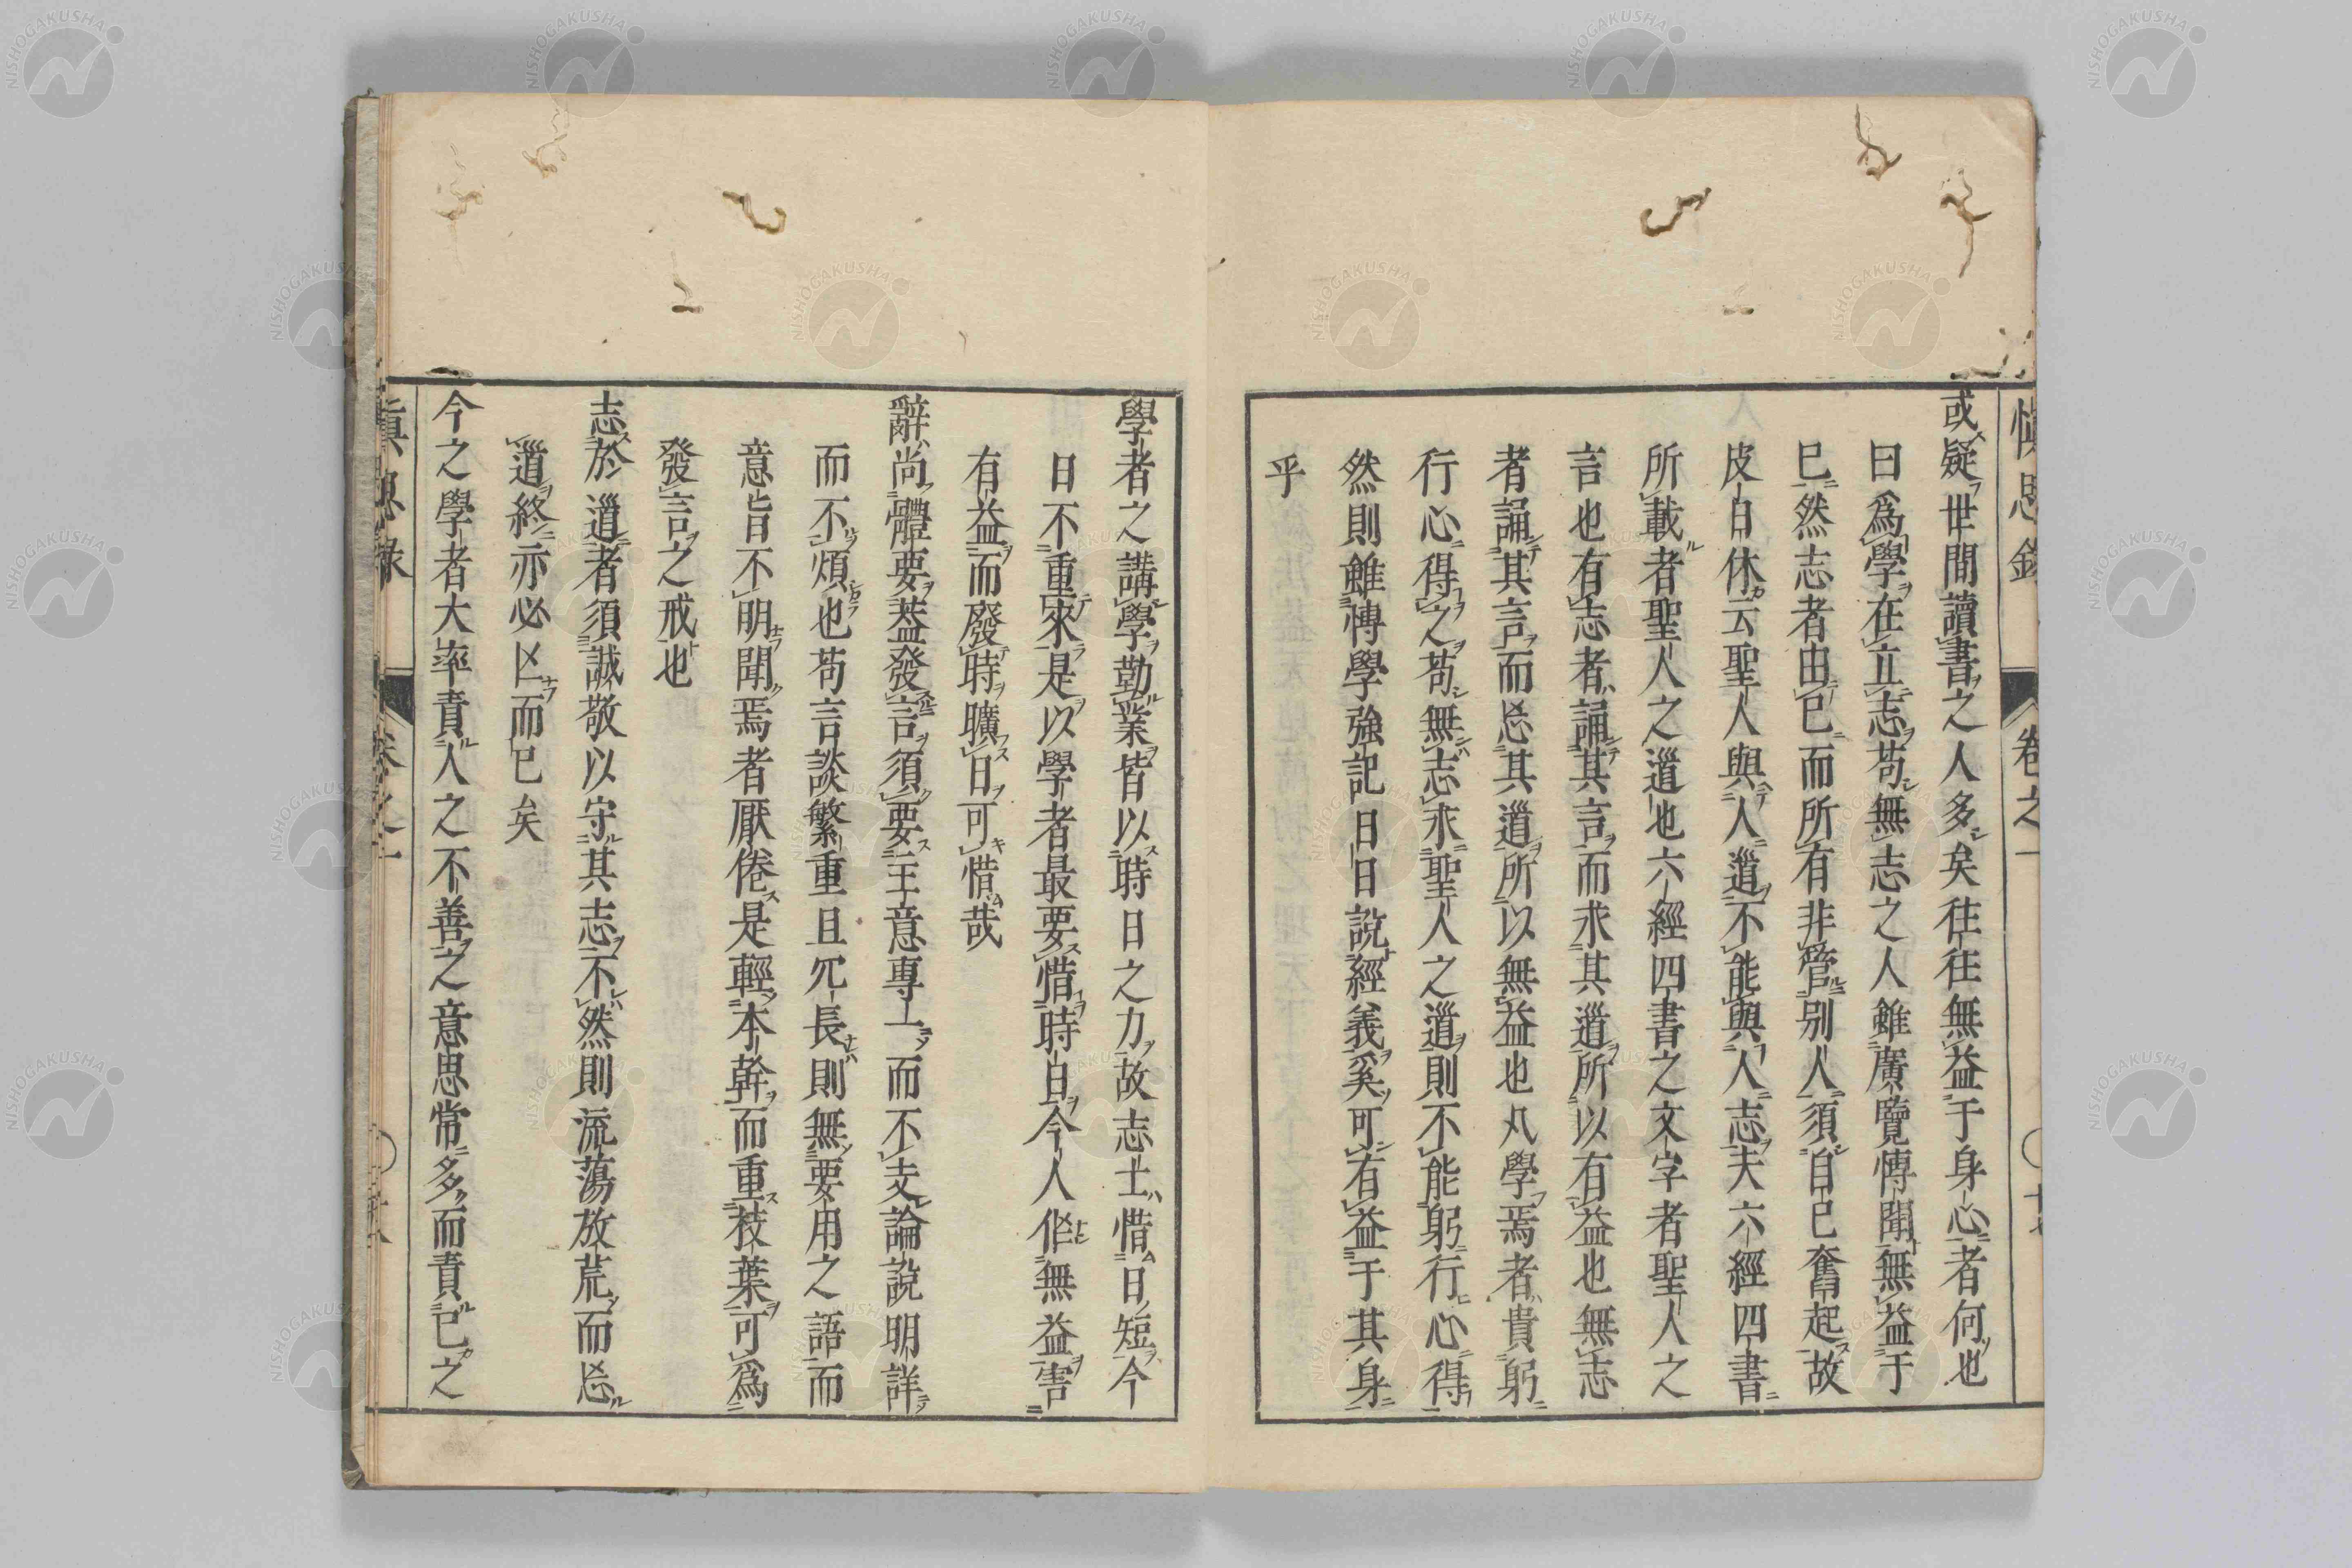 慎思錄
卷之一
或疑世間讀書之人多矣徃徃無益于身心者何也
曰爲學在立志苟無志之人雖廣覽愽聞無益于
已然志者由已而所有非管別人須自已奮起故
皮日休云聖人與人道不能與人志夫六經四書
所載者聖人之道也六經四書之文字者聖人之
言也有志者誦其言而求其道所以有益也無志
者誦其言而忘其道所以無益也凡學焉者貴躬
行心得之苟無志求聖人之道則不能躬行心得
然則雖愽學強記日日説經義奚可有益于其身
乎
學者之講學勤業皆以時日之力故志士惜日短今
日不重來是以學者最要惜時日今人作無益害
有益而廢時曠日可惜哉
辭尚體要葢發言須要主意專一而不支論説明詳
而不煩也苟言談繁重且冗長則無要用之語而
意旨不明聞焉者厭倦是輕本幹而重枝葉可爲
發言之戒也
志於道者須誠敬以守其志不然則流蕩放荒而忘
道終亦必亡而已矣
今之學者大率責人之不善之意思常多而責已之
慎思錄
卷之一